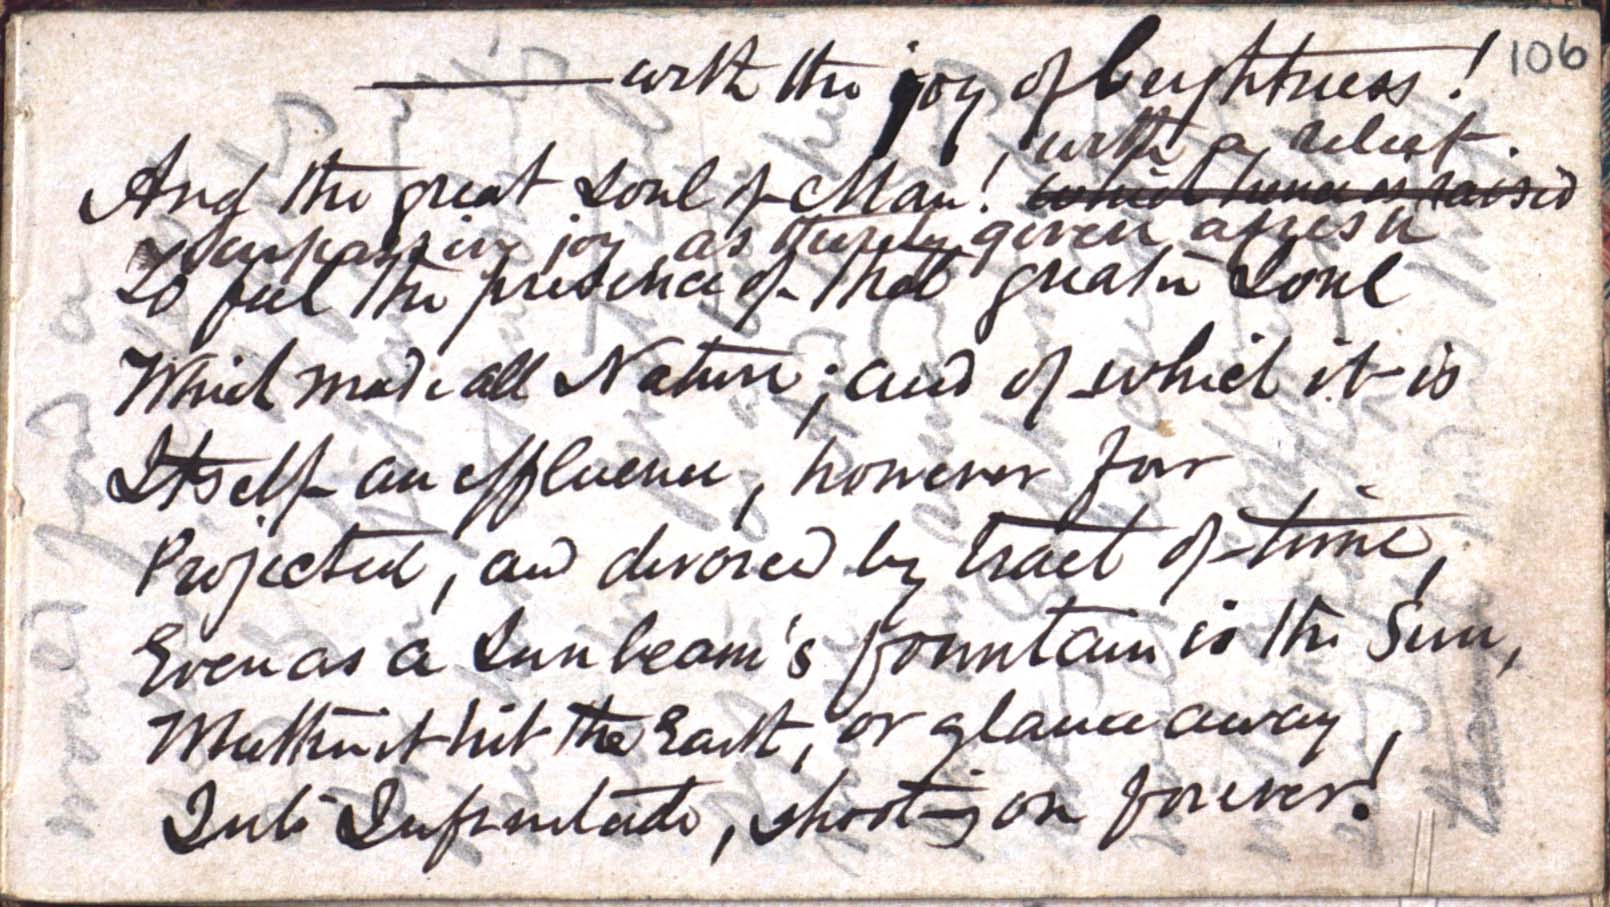 —— with the joy of brightness! 106
with a
And the great Soul of Man! which
Surpassing joy as given afresh
To feel the presence of that greater Soul
Which made all Nature; and of which it is
Itself an effluence, however far
Projected, and devorced by tract of time,
Even as a Sunbeam's fountain is the Sun,
Whether it hit the Earth, or glance away,
Into Infinitude, shooting on forever!